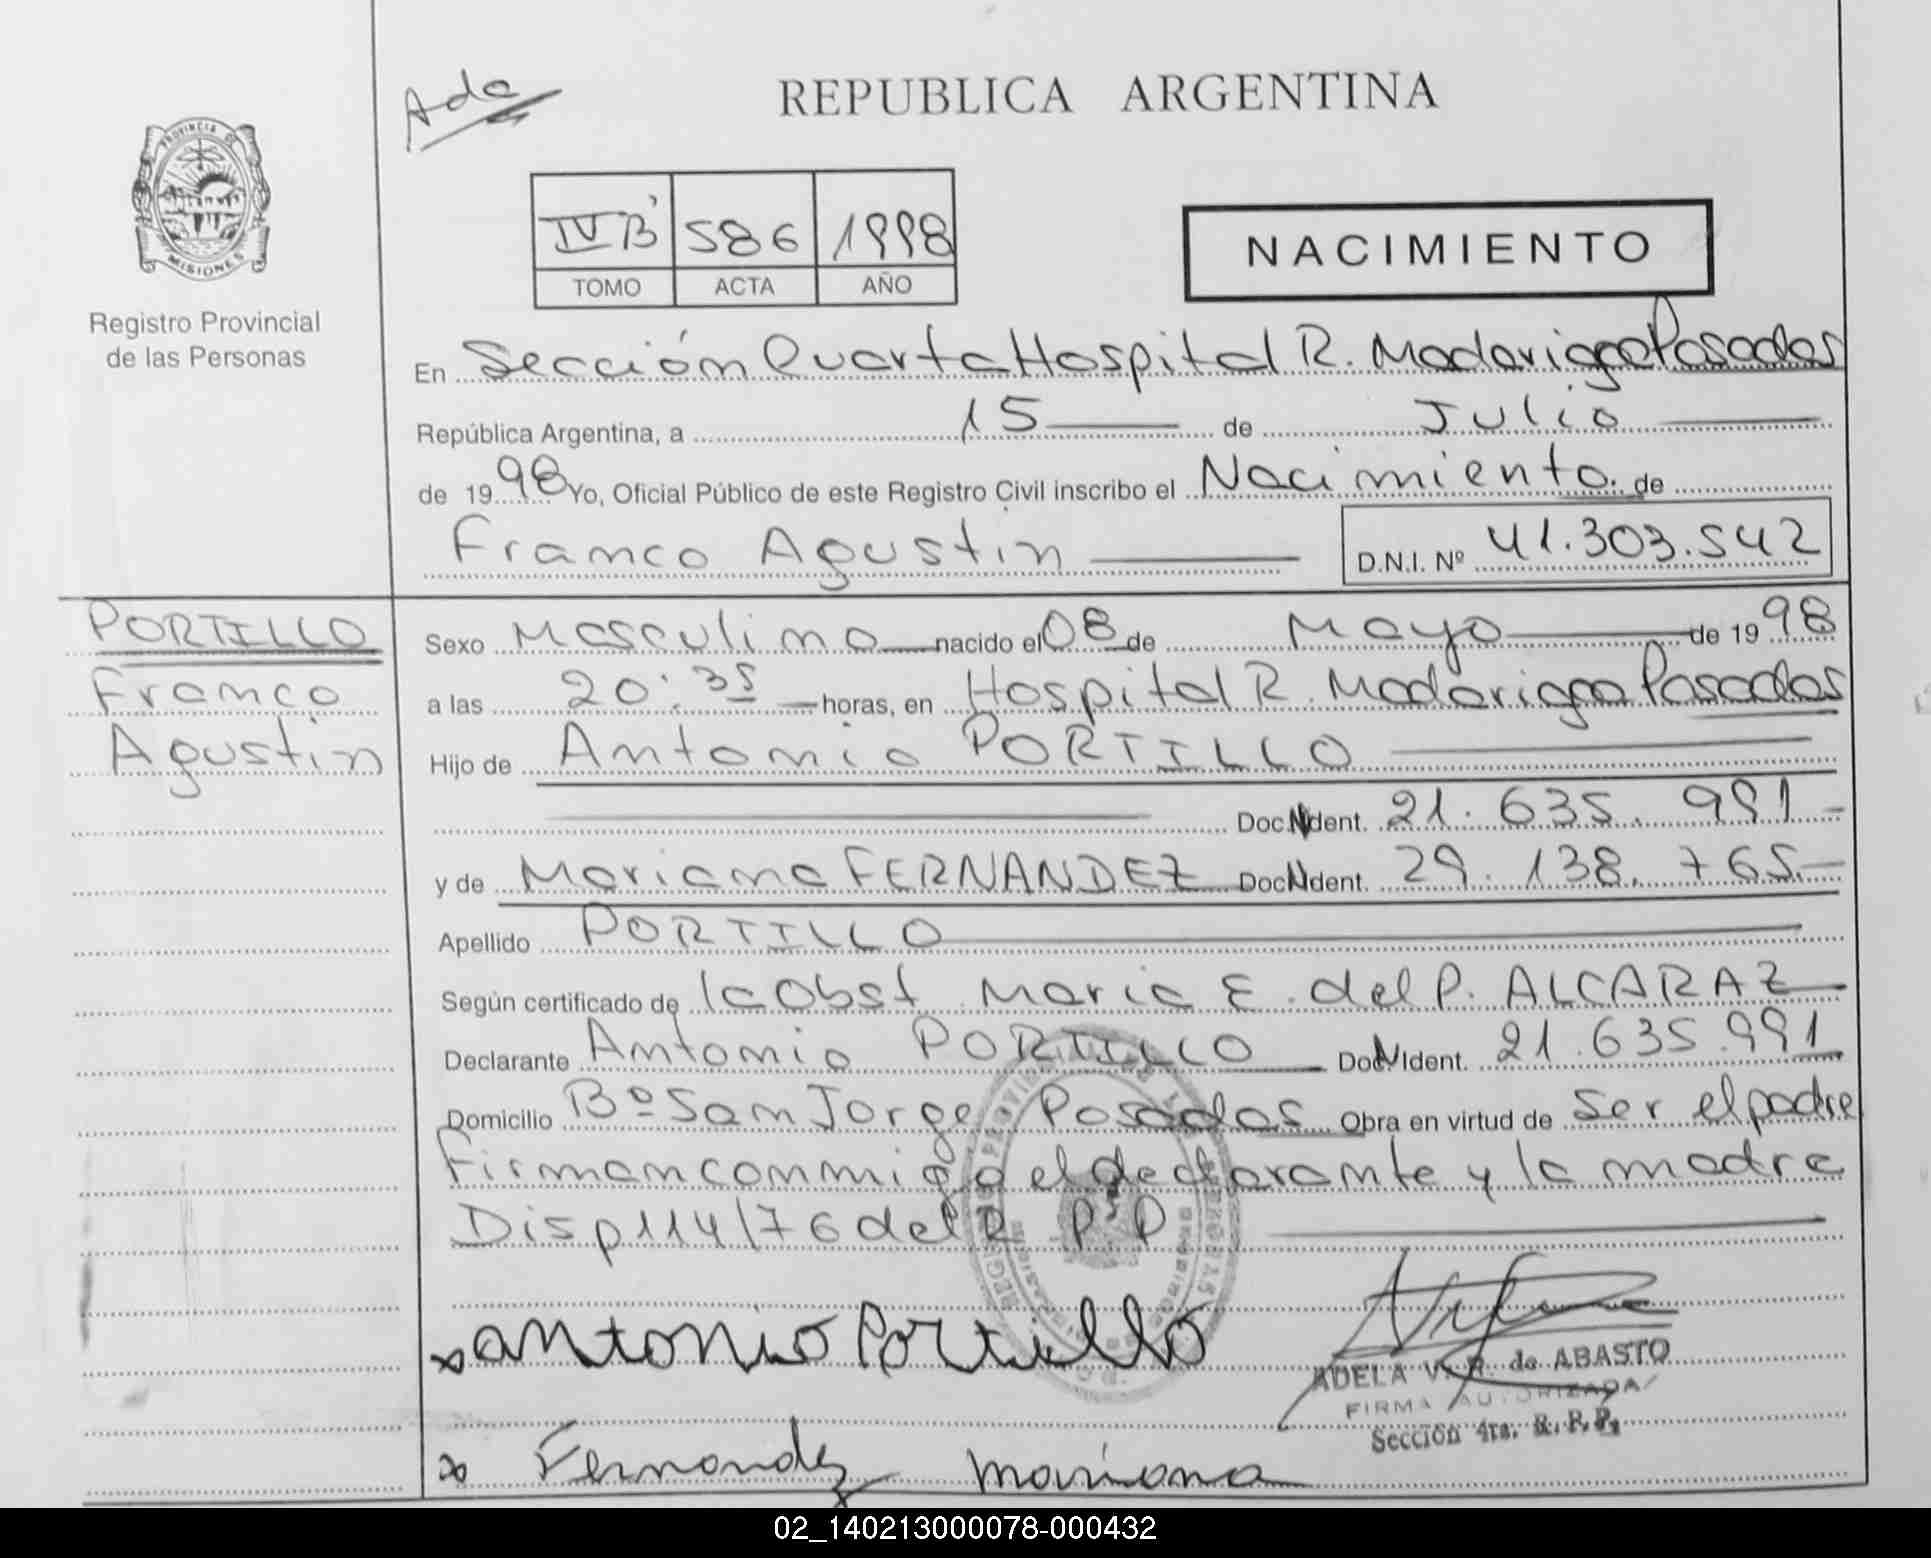 Ada
REPUBLICA ARGENTINA
PROVINCIA DE
MISIONES
Registro Provincial
de las Personas
IV B' 586 1998
TOMO ACTA AÑO
NACIMIENTO
En Sección Cuarta Hospital R. Madariaga Posadas
República Argentina, a 15 de Julio
de 1998 Yo, Oficial Público de este Registro Civil inscribo el Nacimiento de
Franco Agustin D.N.I. Nº 41.303.542
PORTILLO
Franco
Agustin
Sexo Masculino nacido el 08 de Mayo de 1998
a las 20:35 horas, en Hospital R. Madariaga Posadas
Hijo de Antonio PORTILLO
Doc. N Ident. 21.635.991
y de Mariana FERNANDEZ Doc N Ident. 29.138.765.
Apellido PORTILLO
Según certificado de la Obst. Maria E. del P. ALCARAZ
Declarante Antonio PORTILLO Doc N Ident. 21.635.991
Domicilio Bº San Jorge Posadas Obra en virtud de ser el padre
Firman conmigo el declarante y la madre
Disp 114/76 del R P P
antonio Portillo
ADELA V. R. de ABASTO
FIRMA AUTORIZADA
Sección 4ta. R. P. P.
Fernandez mariana
02_140213000078-000432